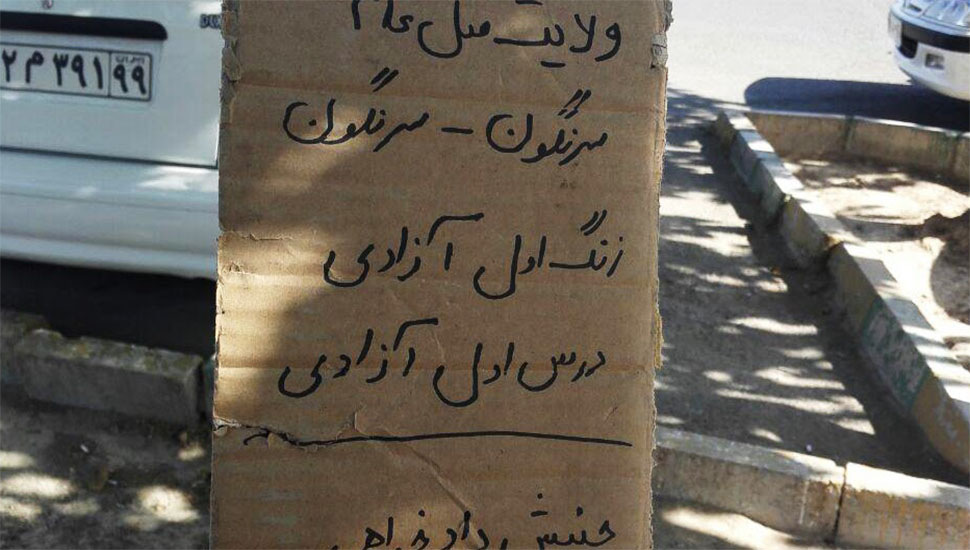 ۲ م ۳۹۱ ۹۹
ایران
ولایت قتل عام
سرنگون - سرنگون
زنگ اول آزادی
درس اول آزادی
جنبش دادخواهی